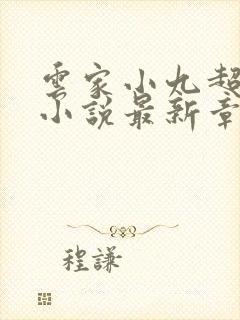 雲家小九超
小說最新章
程謙